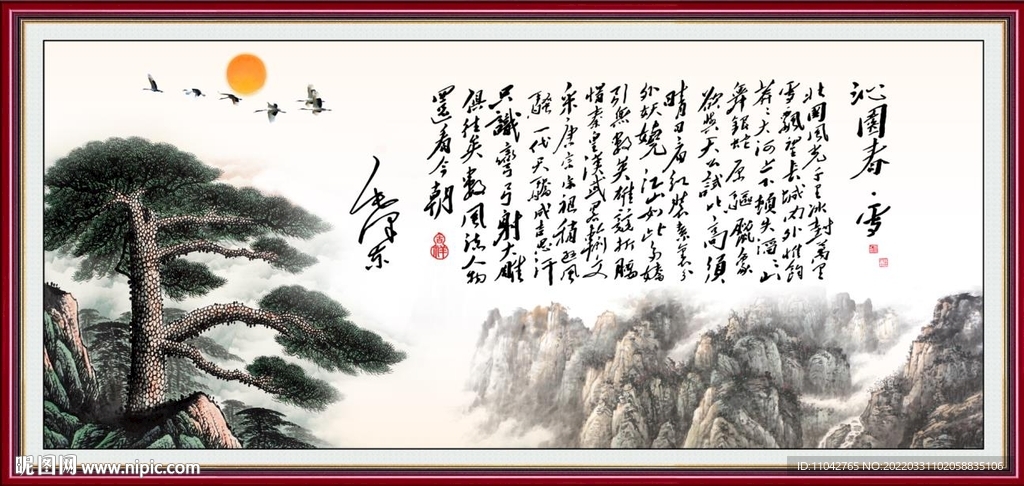 沁園春·雪
北國風光千里冰封萬里
雪飄望長城内外惟餘
莽々大河上下頓失滔々山
舞銀蛇原驅臘象
欲與天公試比高須
晴日看紅裝素裹分
外妖嬈江山如此多嬌
引無數英雄競折腰
惜秦皇漢武略輸文
采唐宗宋祖稍遜風
騷一代天驕成吉思汗
只識彎弓射大雕
俱往矣數風流人物
還看今朝
吉祥
毛澤东
昵图网 www.nipic.com
ID:11042765 NO:20220331102058835106